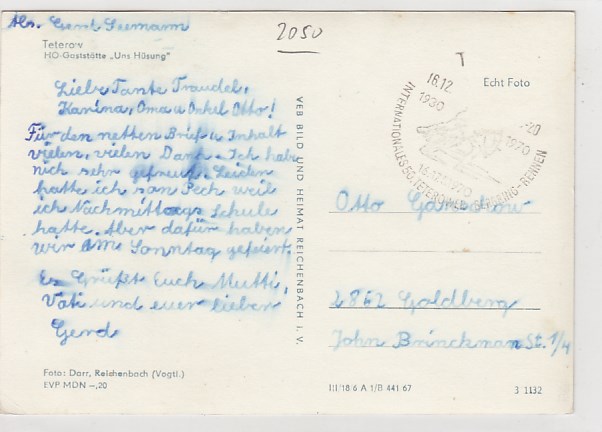 Abs. Gerd Seemann
2050
Teterow
HO-Gaststätte „Uns Hüsung"
Liebe Tante Traudel,
Karina, Oma u Onkel Otto!
Für den netten Brief u Inhalt
vielen, vielen Dank. Ich habe
mich sehr gefreut. Leider
hatte ich so'n Pech weil
ich Nachmittags Schule
hatte. Aber dafür haben
wir am Sonntag gefeiert.
Es Grüßt Euch Mutti,
Vati und euer lieber
Gerd
Foto: Darr, Reichenbach (Vogtl.)
EVP MDN –,20
VEB BILD UND HEIMAT REICHENBACH I. V.
T
Echt Foto
16.12.
-20
1930
1970
16.12.1970
INTERNATIONALES 50. TETEROWER BERGRING-RENNEN
Otto
2862 Goldberg
John Brinckman St. 1/4
III/18/6 A 1/B 441 67
3 1132